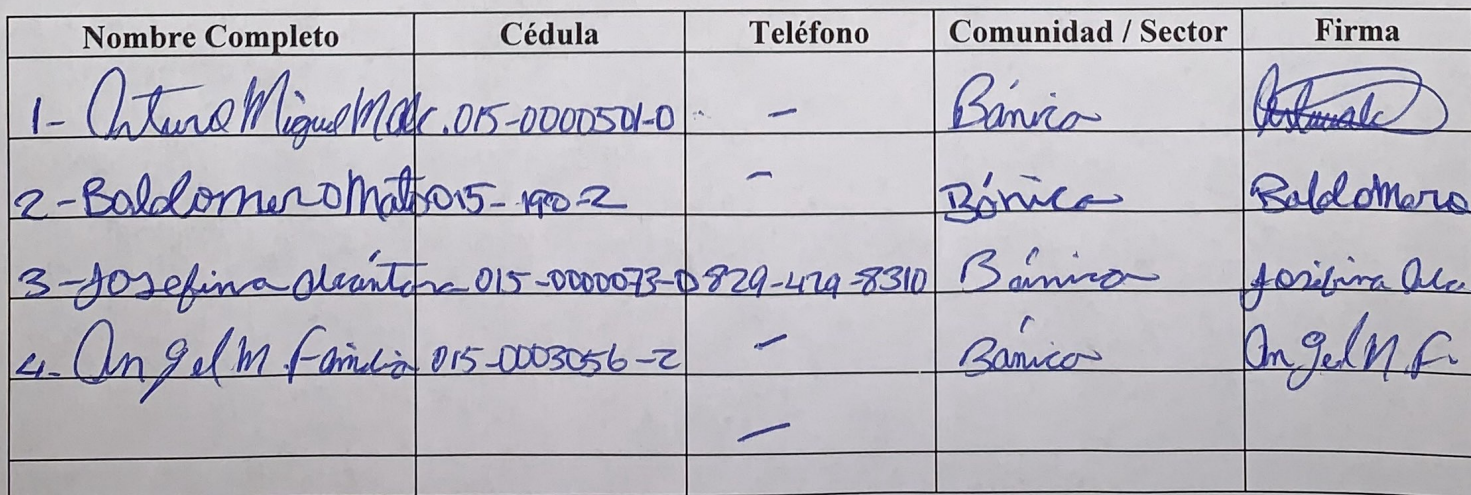 Nombre Completo Cédula Teléfono Comunidad / Sector Firma
1- Arturo Miguel 015-0000501-0 - Bánica
2-Baldomero Mat 015-190-2 - Bánica Baldomero
3-Josefina Alcántara 015-0000073-0 829-429-8310 Bánica Josifina Alca
4- Angel M. Familia 015-0003056-2 - Bánica Angel M. F.
-